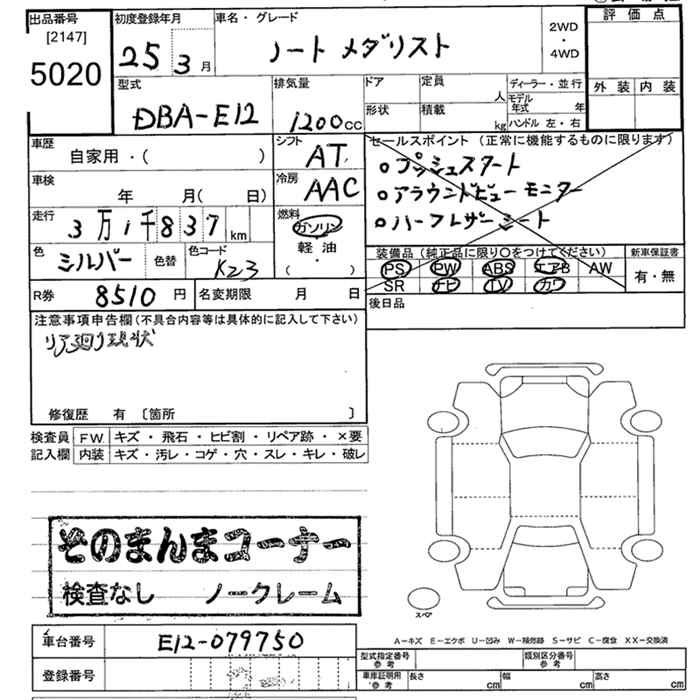 出品番号
[2147]
5020
初度登録年月
25 3月
車名・グレード
ノート メダリスト
2WD
・
4WD
評価点
外装 内装
型式
DBA-E12
排気量
1200cc
ドア
定員
人
形状
積載
kg
ディーラー・並行
モデル年式 年
ハンドル 左・右
車歴
自家用・( )
シフト
AT
車検
年 月( 日)
冷房
AAC
走行
3万1千837km
燃料
ガソリン
軽油
( ・ )
色
シルバー
色替
色コード
K23
R券
8510円
名変期限 月 日
セールスポイント (正常に機能するものに限ります)
○プッシュスタート
○アラウンドビューモニター
○ハーフレザーシート
装備品 (純正品に限り○をつけてください)
PS PW ABS エアB AW
SR ナビ TV カワ
新車保証書
有・無
後日品
注意事項申告欄 (不具合内容等は具体的に記入して下さい)
リア廻り現状
修復歴 有 〔箇所 〕
検査員記入欄
FW キズ・飛石・ヒビ割・リペア跡・×要
内装 キズ・汚レ・コゲ・穴・スレ・キレ・破レ
そのまんまコーナー
検査なし ノークレーム
スペア
A-キズ E-エクボ U-凹み W-補修跡 S-サビ C-腐食 XX-交換済
車台番号
E12-079750
登録番号
型式指定番号
参考
類別区分番号
参考
車庫証明用
参考
長さ cm
幅 cm
高さ cm